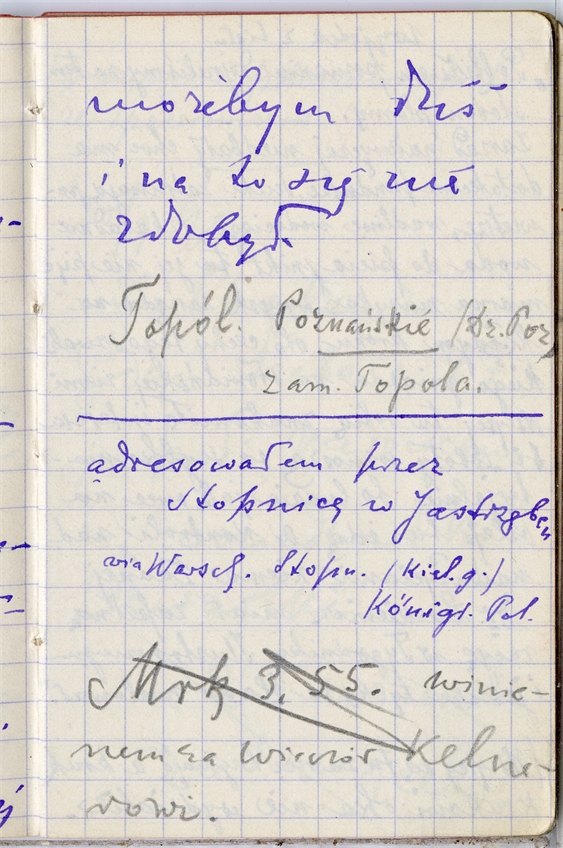 możebym dziś
i na to się nie
zdobył.
Topól. Poznańskié (Dr. Poz)
zam. Topola.
adresowałem przez
Stopnicę w Jastrzęb
via Warsch. Stopn. (Kiel. g.)
Königr. Pol.
Mrk 3.55. winie-
nem za wieczór Kelne-
rowi.